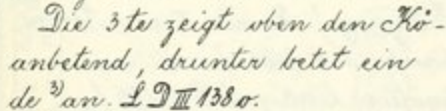 Die 3te zeigt oben den Kö-
anbetend, drunter betet ein
de ³⁾ an. L D III 138 o.